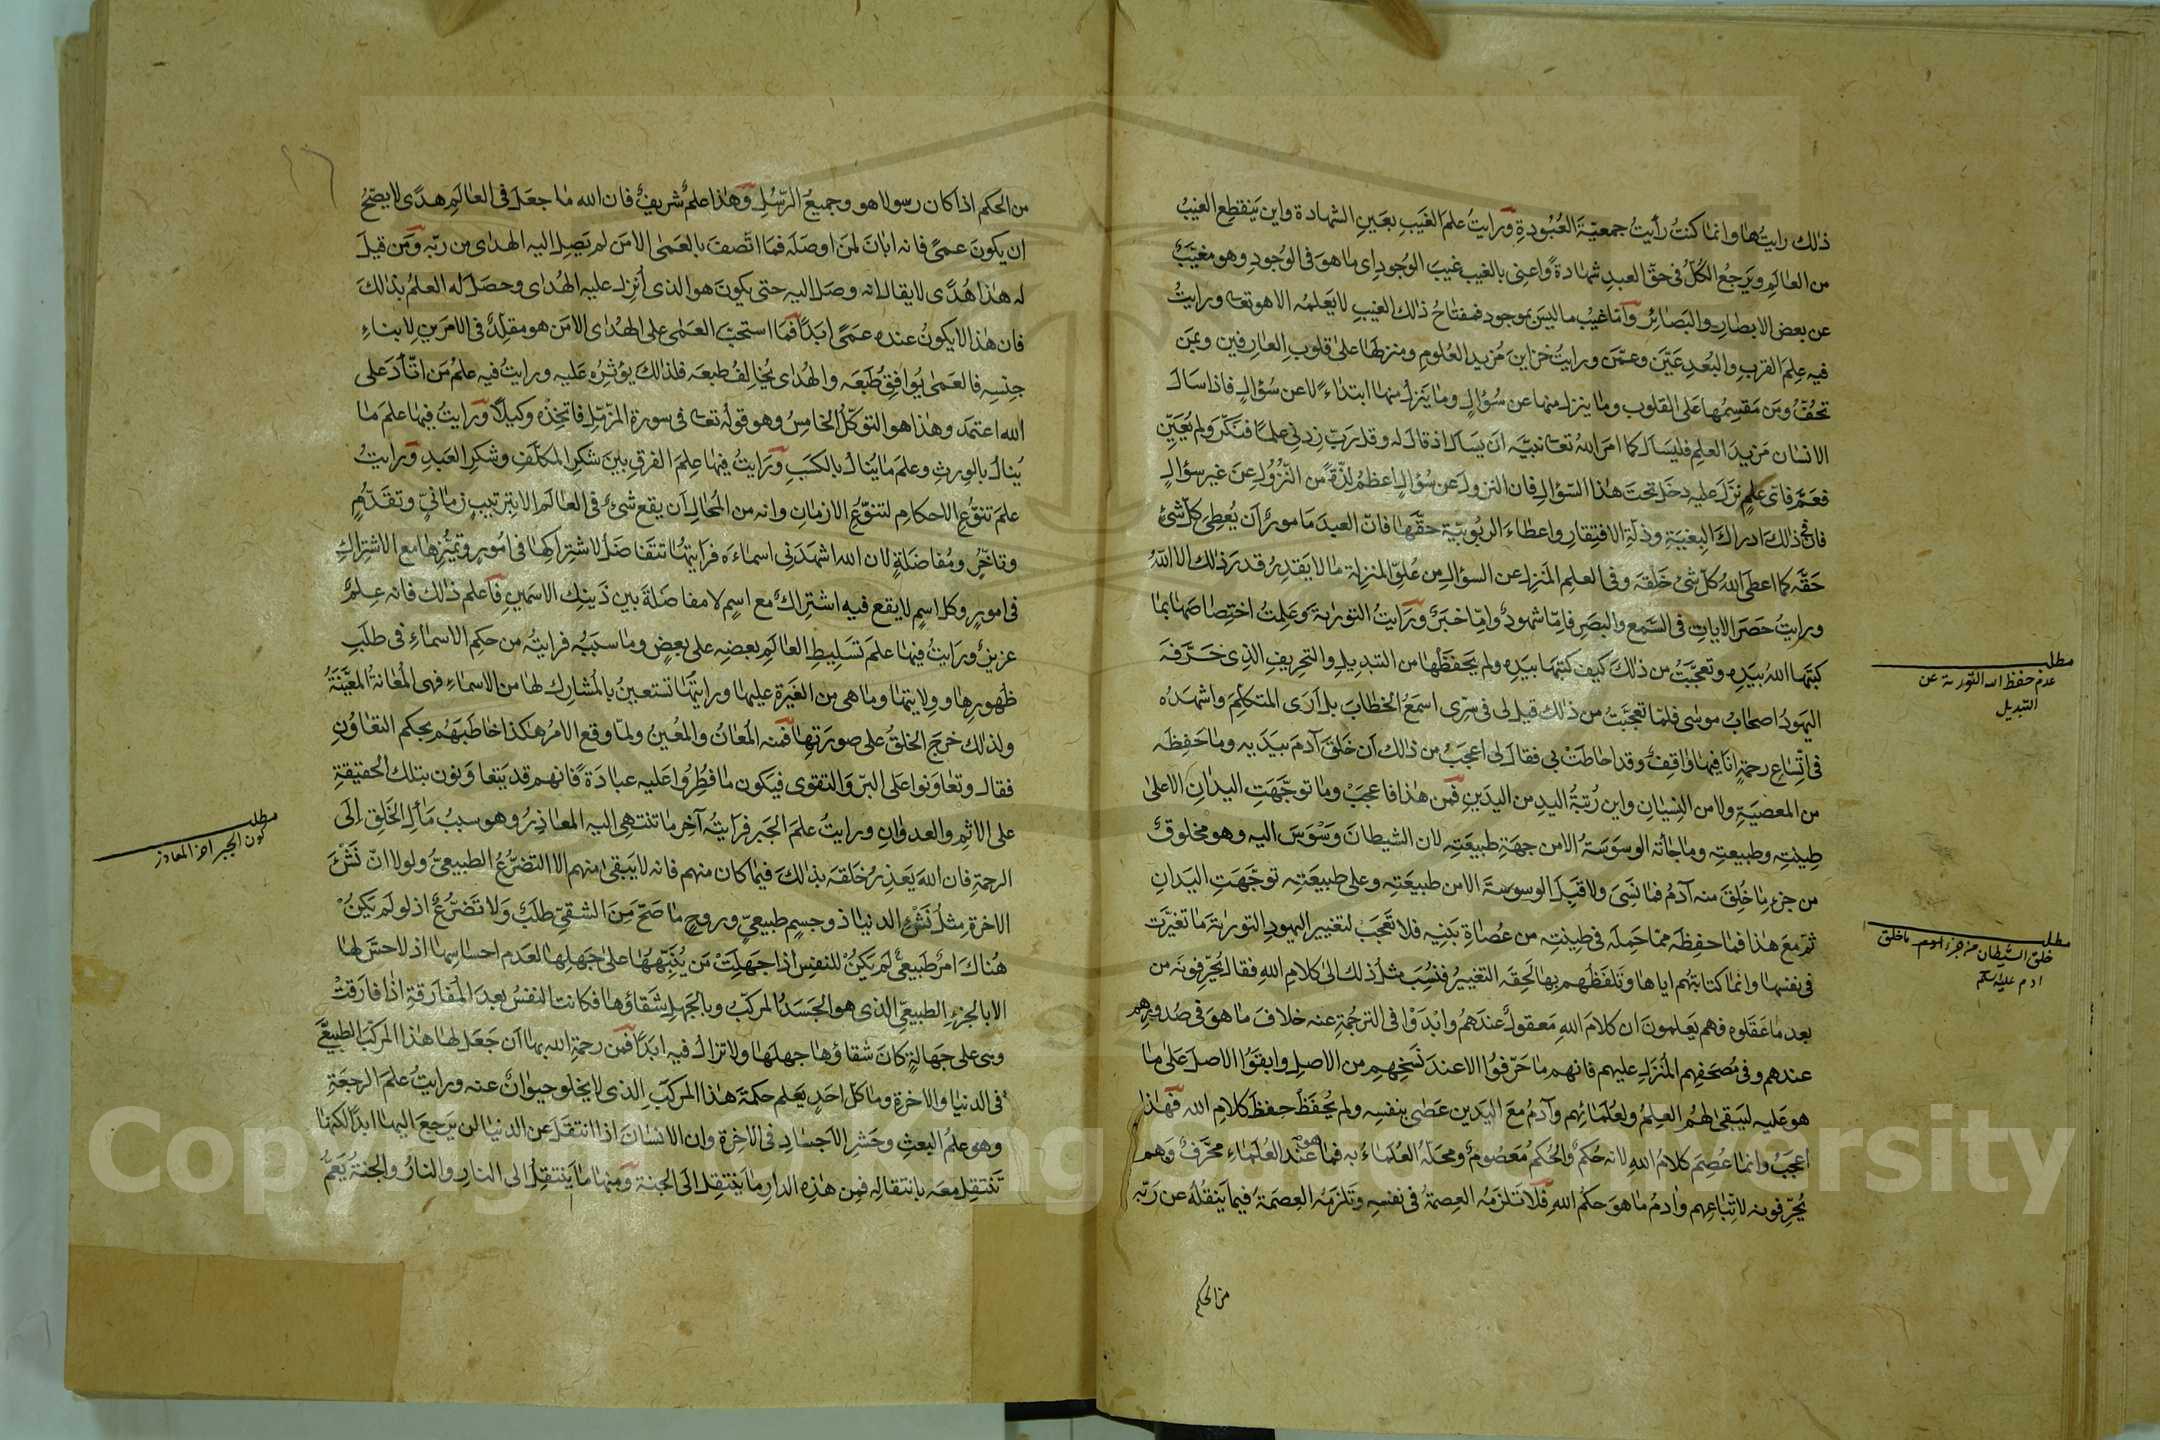 ذلك رايتها وانما كنت رأيت جمعيّة العُبُودةِ ورايت علم الغيب بعين الشهادة واين ينقطع الغيبُ
من العالم ويرجعُ الكلُّ فى حقّ العبدِ شهادةً واعنى بالغيب غيبَ الوجودِ اى ما هو فى الوجودِ وهو مغيّبٌ
عن بعض الابصارِ والبصائرِ وأمّا غيب ما ليس بموجود فمفتاحُ ذلك الغيبِ لا يعلمه الا هو تعالى ورايتُ
فيه علم القربِ والبُعدِ عمّن وممّن ورايتُ خزاين مزيد العلومِ ومنزلها على قلوبِ العارفين وبمن
تحُفّ ومن مقسمها على القلوب وما ينزل منها عن سُؤالٍ وما ينزلُ منها ابتداءً لا عن سؤالٍ فاذا سأل
الانسان مزيد العلم فليسأل كما امر اللهُ تعالى نبيّه ان يسأل اذ قال له وقل ربّ زدنى علمًا فنكّر ولم يُعيّن
فعمَّ فاىّ علمٍ نزل عليه دخل تحت هذا السّؤال فان النزول عن سؤالٍ اعظمُ لذّةً من النّزولِ عن غير سؤالٍ
فان فى ذلك ادراك البغيةِ وذلّة الافتقارِ واعطاء الربوبيّة حقّها فانّ العبد مامورٌ أن يُعطى كلّ شئ
حقّه كما اعطى اللهُ كلّ شئ خلقه وفى العلم المنزل عن السؤالِ من علوّ المنزلة ما لا يقدرُ قدر ذلك الا اللهُ
ورايتُ حصر الاياتِ فى السّمع والبصر فامّا شهودٌ وامّا خبرٌ ورأيت التوراية وعلمتُ اختصاصها بما
كتبها اللهُ بيده وتعجّبت من ذلك كيف كتبها بيده ولم يحفظها من التبديل والتحريفِ الذى حرّفه
اليهودُ اصحابُ موسى فلمّا تعجّبت من ذلك قيل لى فى سرّى اسمعُ الخطاب بل ارى المتكلّم واشهده
فى اتّساعِ رحمةٍ انا فيها واقفٌ وقد احاطت بى فقال لى اعجبُ من ذلك ان خلق آدم بيديه وما حفظه
من المعصيةِ ولا من النسيان واين رُتبةُ اليد من اليدينِ فمن هذا فاعجب وما توجّهت اليدان الا على
طينتِه وطبيعتِه وما جاته الوسوسةُ الا من جهةِ طبيعتِه لان الشيطان وسوس اليه وهو مخلوقٌ
من جزءِ ما خلق منه آدمُ فما نسى ولا قبل الوسوسة الا من طبيعتِه وعلى طبيعتِه توجّهتِ اليدانِ
ثمّ مع هذا فما حفظه ممّا حمله فى طينتِه من عصاةِ بنيه فلا تعجب لتغيير اليهودِ التوراية فما تغيّرت
فى نفسها وانما كتابتهم اياها وتلفظهم بها لحقه التغيير فنُسِب مثلُ ذلك الى كلامِ اللهِ فقال يُحرّفونه من
بعد ما عقلوه وهم يعلمون ان كلام اللهِ معقولٌ عندهم وابدوا فى الترجمةِ عنه خلاف ما هو فى صدورهم
عندهم وفى مُصحفهم المُنزلِ عليهم فانهم ما حرّفوا الا عند نسخهم من الاصلِ وابقوا الاصل على ما
هو عليه ليبقى لهم العلمُ ولعلمائهم وآدمُ مع اليدين عصى بنفسِه ولم يُحفظ حفظ كلامِ الله فهذا
اعجبُ وانما عُصم كلامُ اللهِ لانه حُكمٌ والحُكمُ معصُومٌ ومحلّه العُلماءُ به فما هو عند العُلماءِ محرّفٌ وهم
يُحرّفونه لاتباعِهم وادمُ ما هو حكمُ اللهِ فلا تلزمه العصمةُ فى نفسِه وتلزمه العصمةُ فيما ينقلهُ عن ربّه
من الحكم
مطلب
عدم حفظ الله التورية عن
التبديل
مطلب
خلق الشيطان من جزء ما خلق
ادم عليه السلام
من الحكم اذا كان رسولا هو وجميعُ الرّسُلِ وهذا علمٌ شريفٌ فان الله ما جعل فى العالم هدًى لا يصحُّ
ان يكون عمىً فانه ابان لمن اوصله فما اتّصف بالعمى الا من لم يصل اليه الهدى من ربّه ومن قيل
له هذا هُدًى لا يقال انه وصل اليه حتى يكون هو الذى أنزل عليه الهُدى وحصل له العلمُ بذلك
فان هذا لا يكونُ عنده عمىً ابدًا فما استحبّ العمى على الهُدى الا من هو مقلّدٌ فى الامرين لابناءِ
جنسِه فالعمى يُوافقُ طبعه والهُدى يُخالفُ طبعه فلذلك يؤثرُه عليه ورايتُ فيه علمُ من اتّأد على
الله اعتمد وهذا هو التوكّلُ الخامسُ وهو قولُه تعالى فى سورة المزّمّل فاتخذه وكيلاً ورايتُ فيها علم ما
يُنال بالورث وعلم ما يُنالُ بالكسب ورايتُ فيها علم الفرقِ بين شكرِ المكلّفِ وشكرِ العبدِ ورايتُ
علم تنوّعُ الاحكامِ لتنوّعِ الازمان وانه من المُحالِ أن يقع شئٌ فى العالم الا بترتيبٍ زمانىٍّ وتقدّمٍ
وتاخّرٍ ومُفاضلةٍ لان الله اشهدنى اسماءَه فرايتُها تتفاضل لاشتراكها فى امُورٍ وتميّزها مع الاشتراكِ
فى امورٍ وكل اسمٍ لا يقع فيه اشتراكٌ مع اسمٍ لا مفاضلة بين ذينك الاسمين فاعلم ذلك فانه علمٌ
عزيزٌ ورايتُ فيها علم تسليطِ العالم بعضِه على بعضٍ وما سببُه فرايتُه من حكم الاسماءِ فى طلبِ
ظهورها وولايتها وما هى من الغيرة عليها ورايتُها تستعينُ بالمشارك لها من الاسماءِ فهى المُعانةُ المعيّنةُ
ولذلك خرج الخلقُ على صورتها فمنه المُعانُ والمُعين ولمّا وقع الامرُ هكذا خاطبهم بحكم التعاونِ
فقال وتعاونوا على البرّ والتقوى فيكون ما فُطِروا عليه عبادةً فانهم قد يتعاونون بتلك الحقيقةِ
على الاثم والعدوانِ ورايتُ علمَ الجبر فرايتُه آخر ما تنتهى اليه المعاذيرُ وهو سببُ مآلِ الخلق الى
الرحمةِ فان الله يعذرُ خلقه بذلك فيما كان منهم فانه لا يبقى منهم الا التضرّعُ الطبيعىُّ ولولا انّ نشْءَ
الاخرة مثلُ نشْءِ الدنيا ذو جسم طبيعىٍّ وروحٍ ما صحّ من الشقىِّ طلبٌ ولا تضرّعٌ اذ لو لم يكنْ
هُناك امرٌ طبيعىٌّ لم يكنْ للنفس اذا جهلت من يُنبّهها على جهلها لعدم احساسها اذ لا حسّ لها
الا بالجزءِ الطبيعىِّ الذى هو الجسدُ المركّبُ وبالجهلِ شقاؤها فكانت النفسُ بعد المُفارقةِ اذا فارقتْ
وهى على جهالةٍ كان شقاؤها جهلها ولا تزالُ فيه ابدًا فمن رحمةِ الله بها أن جعل لها هذا المركّب الطبيعىَّ
فى الدنيا والاخرة وما كلّ احدٍ يعلم حكمة هذا المركّب الذى لا يخلو حيوانٌ عنه ورايتُ علم الرجعةِ
وهو علمُ البعثِ وحشرِ الاجسادِ فى الاخرة وان الانسان اذا انتقل عن الدنيا لن يرجع اليها ابدًا لكنها
تنتقل معه بانتقالِه فمن هذه الدارِ ما ينتقلُ الى الجنة ومنها ما ينتقلُ الى النارِ والنارُ والجنةُ يعمُّ
مطلب
كون الجبر اخر المعاذير
Copyright © King Saud University